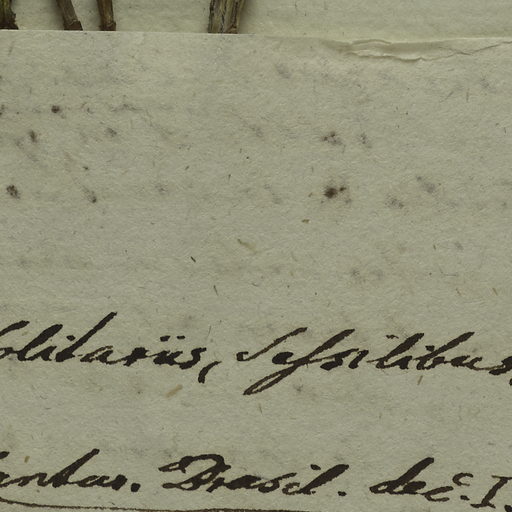 solitariis, sessilibus,
antar. Brasil. dec. I.